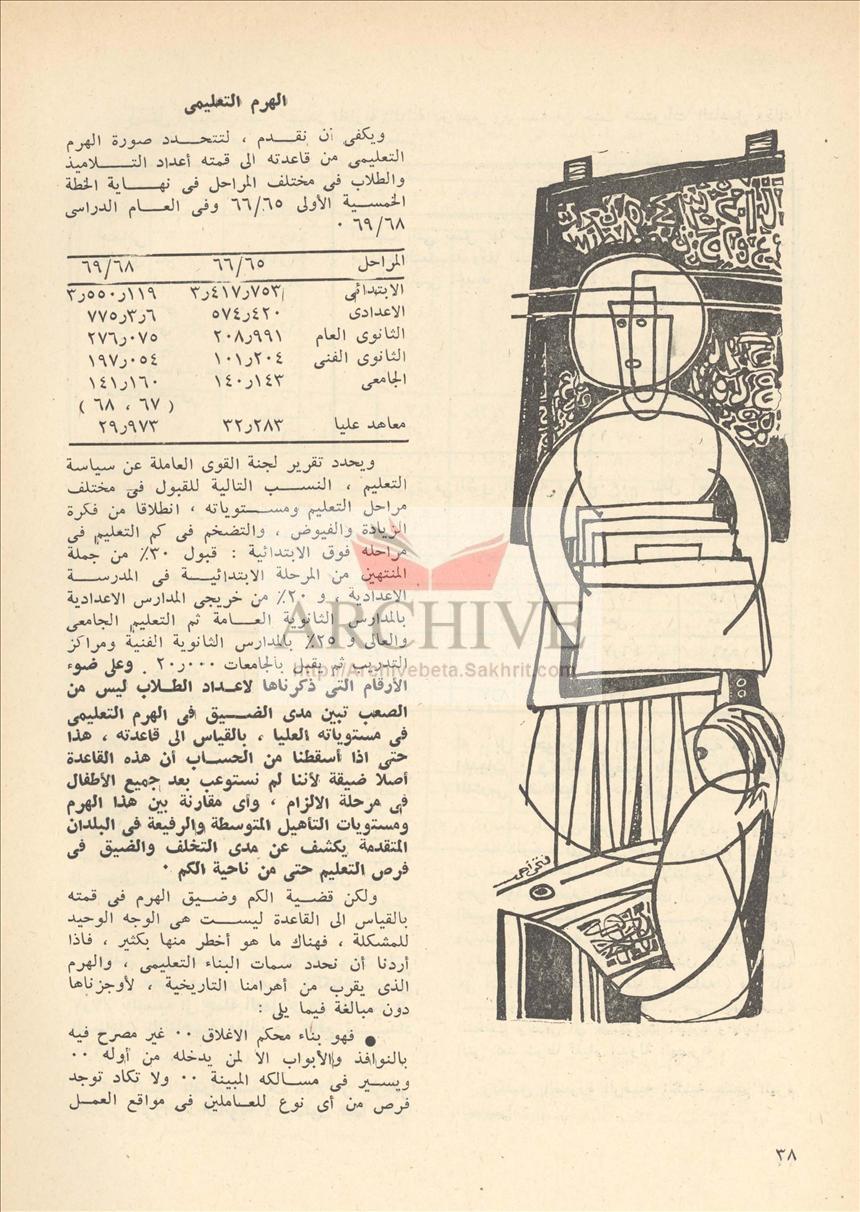 الهرم التعليمى
ويكفى أن نقـــدم ، لتتحـــدد صورة الهرم
التعليمى من قاعدته الى قمته أعداد التـــلاميذ
والطلاب فى مختلف المراحل فى نهـــاية الخطة
الخمسـية الأولى ٦٦/٦٥ وفى العـــام الدراسى
٦٩/٦٨ ٠
المراحل ٦٦/٦٥ ٦٩/٦٨
الابتدائى ٣٫٤١٧٫٧٥٣ ٣٫٥٥٠٫١١٩
الاعدادى ٥٧٤٫٤٢٠ ٧٧٥٫٣٫٦
الثانوى العام ٢٠٨٫٩٩١ ٢٧٦٫٠٧٥
الثانوى الفنى ١٠١٫٢٠٤ ١٩٧٫٠٥٤
الجامعى ١٤٠٫١٤٣ ١٤١٫١٦٠
( ٦٧ ، ٦٨ )
معاهد عليا ٣٢٫٢٨٣ ٢٩٫٩٧٣
ويحدد تقرير لجنة القوى العاملة عن سياسة
التعليم ، النسـب التالية للقبول فى مختلف
مراحل التعليم ومسـتوياته ، انطلاقا من فكرة
الزيادة والفيوض ، والتضخم فى كم التعليم فى
مراحله فوق الابتدائية : قبول ٣٠٪ من جملة
المنتهين من المرحلة الابتدائيـة فى المدرسـة
الاعدادية ، و ٢٠٪ من خريجى المدارس الاعدادية
بالمدارس الثانوية العـــامة ثم التعليم الجامعى
والعالى و ٢٥٪ بالمدارس الثانوية الفنية ومراكز
التدريب ثم يقبل بالجامعات ٢٠٫٠٠٠ . وعلى ضوء
الأرقام التى ذكرناها لاعـداد الطـلاب ليس من
الصعب تبين مدى الضـيق فى الهرم التعليمى
فى مستوياته العليا ، بالقياس الى قاعدته ، هذا
حتى اذا أسقطنا من الحساب أن هذه القاعدة
أصلا ضيقة لأننا لم نستوعب بعد جميع الأطفال
فى مرحلة الالزام ، وأى مقارنة بين هذا الهرم
ومستويات التأهيل المتوسطة والرفيعة فى البلدان
المتقدمة يكشف عن مدى التخلف والضيق فى
فرص التعليم حتى من ناحية الكم ٠
ولكن قضـية الكم وضـيق الهرم فى قمته
بالقياس الى القاعدة ليسـت هى الوجه الوحيد
للمشكلة ، فهناك ما هو أخطر منها بكثير ، فاذا
أردنا أن نحدد سمات البناء التعليمى ، والهرم
الذى يقرب من أهرامنا التاريخية ، لأوجزناها
دون مبالغة فيما يلى :
● فهو بناء محكم الاغلاق ٠٠ غير مصرح فيه
بالنوافذ والأبواب الا لمن يدخله من أوله ٠٠
ويسـير فى مسـالكه المبينة ٠٠ ولا تكاد توجد
فرص من أى نوع للعـاملين فى مواقع العمـل
ARCHIVE
http://Archivebeta.Sakhrit.com
٣٨